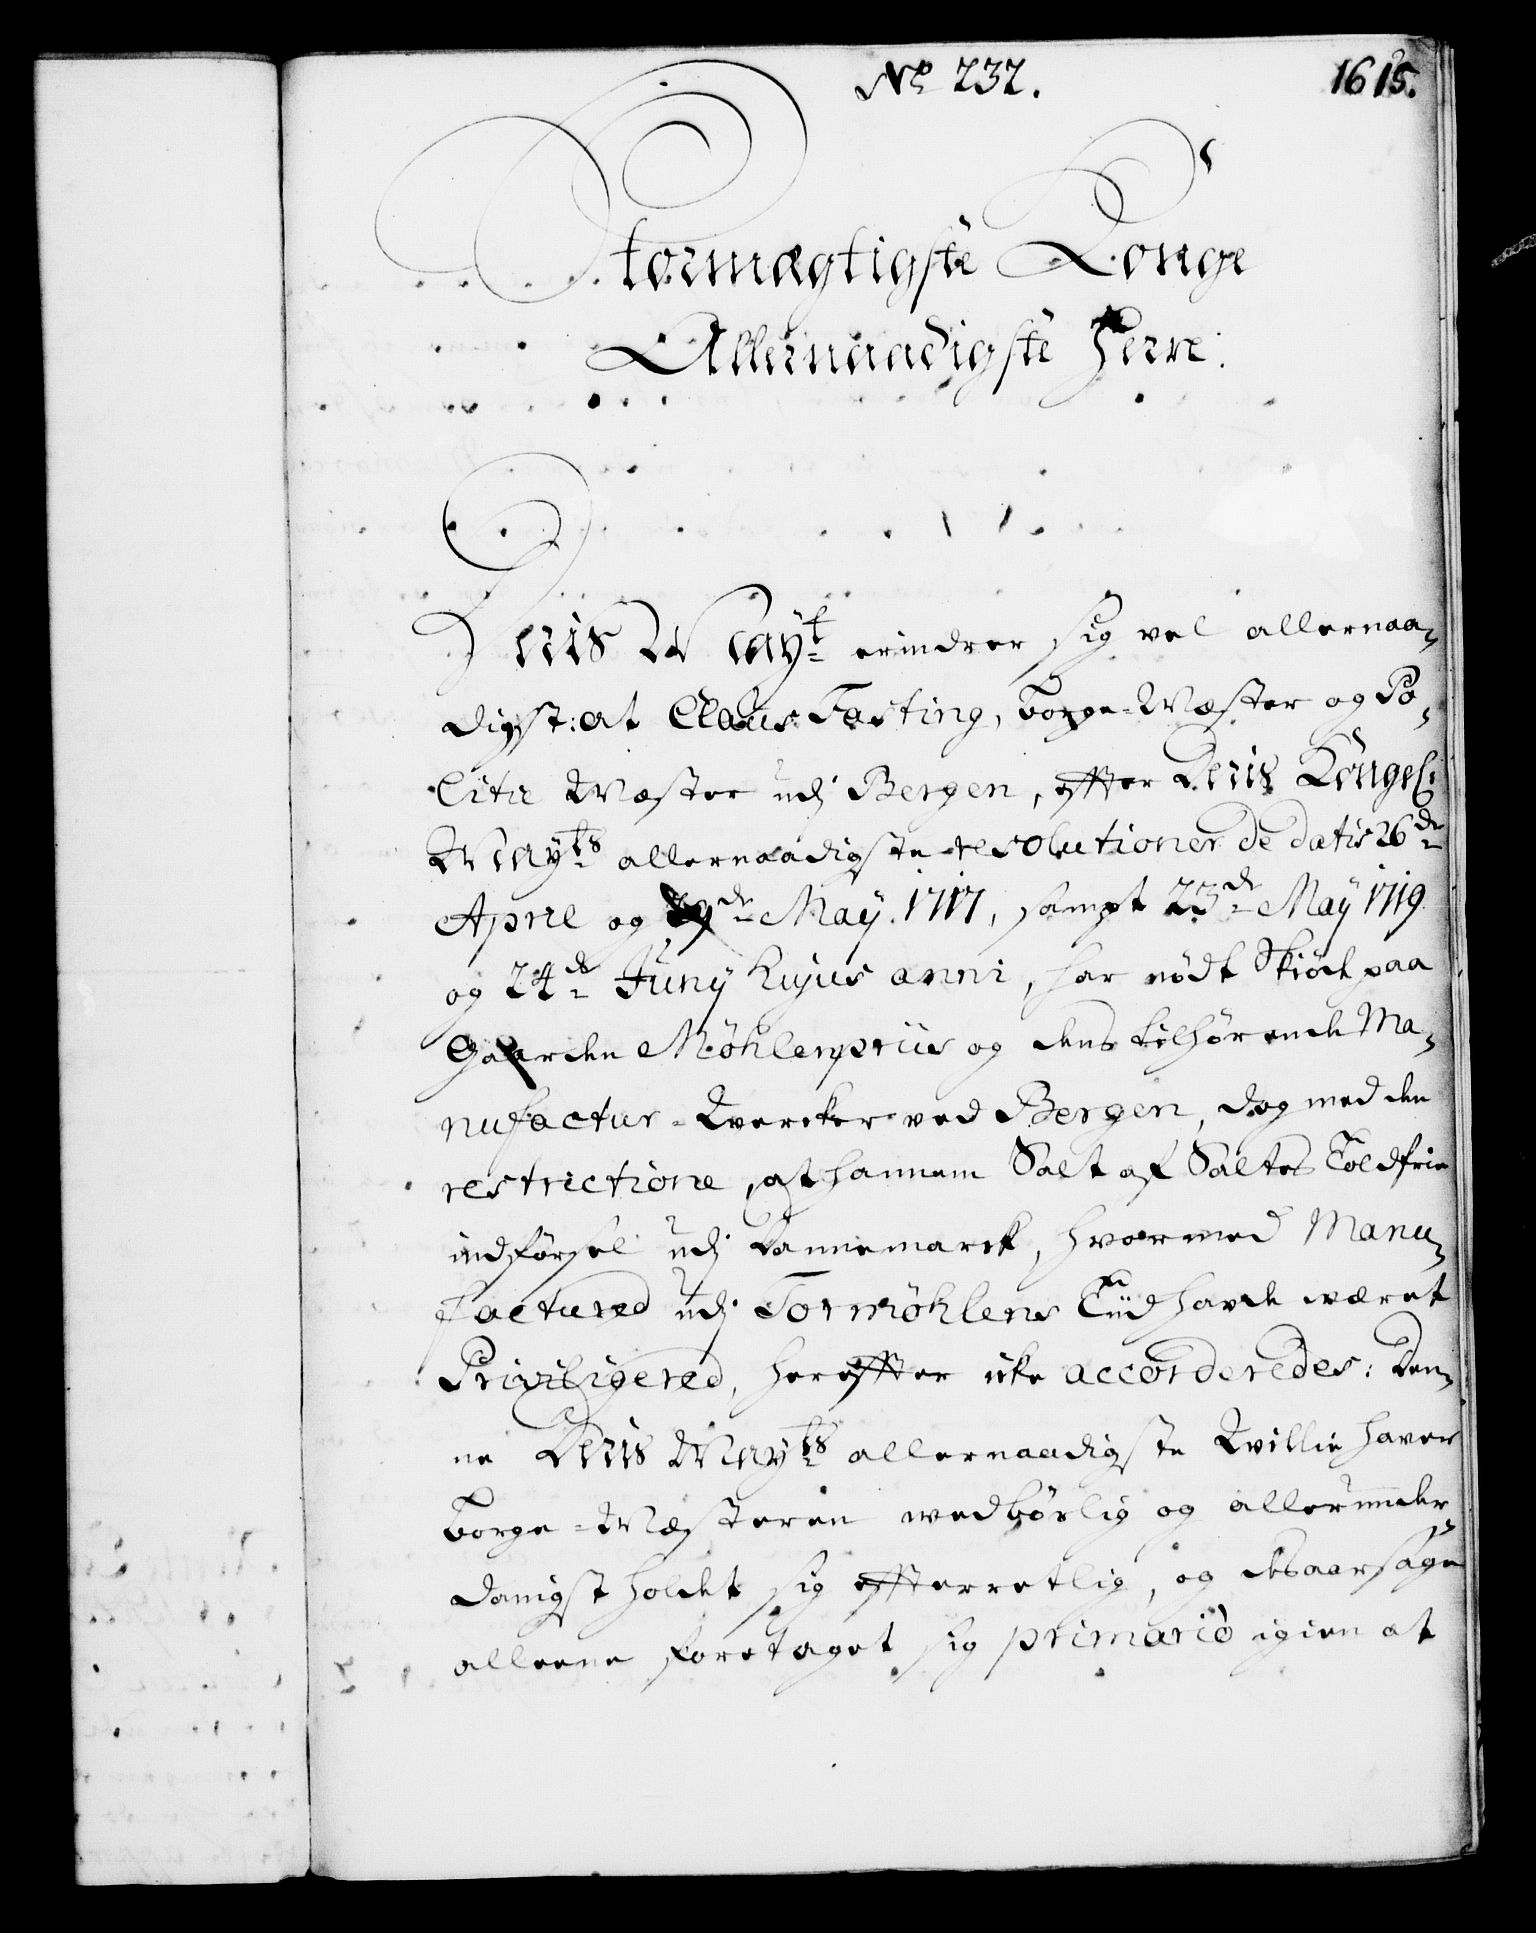 No 232.
1615.
Stormægtigste Konge
Allernaadigste Herre.
Deris Mayt erindrer sig vel allernaa-
digst: at Claus Fasting, Borge-Mæster og Po-
litie Mæster udj Bergen, effter Deris Kongel:
Mayts allernaadigste resolutioner de datis 26de
April og de May. 1717, sampt 23de May 1719
og 24de Juny hujus anni, har nødt Skiøde paa
Gaarden Møhlenpriis og dens tilhørende Ma-
nufactur-Wercker ved Bergen, dog med den
restrictione, at hannem Salt af Saltes Toldfrie
indførsel udj Dannemarck, hvormed Manu-
factured udj Tormøhlens Tiid hafde været
Priviligered, hereffter icke accorderedes: Den-
ne Deris Mayts allernaadigste Willie haver
Borge-Mæsteren wedbørlig og allerunder
danigst holdet sig effterretlig, og desaarsage
alleene foretaget sig primario igien at